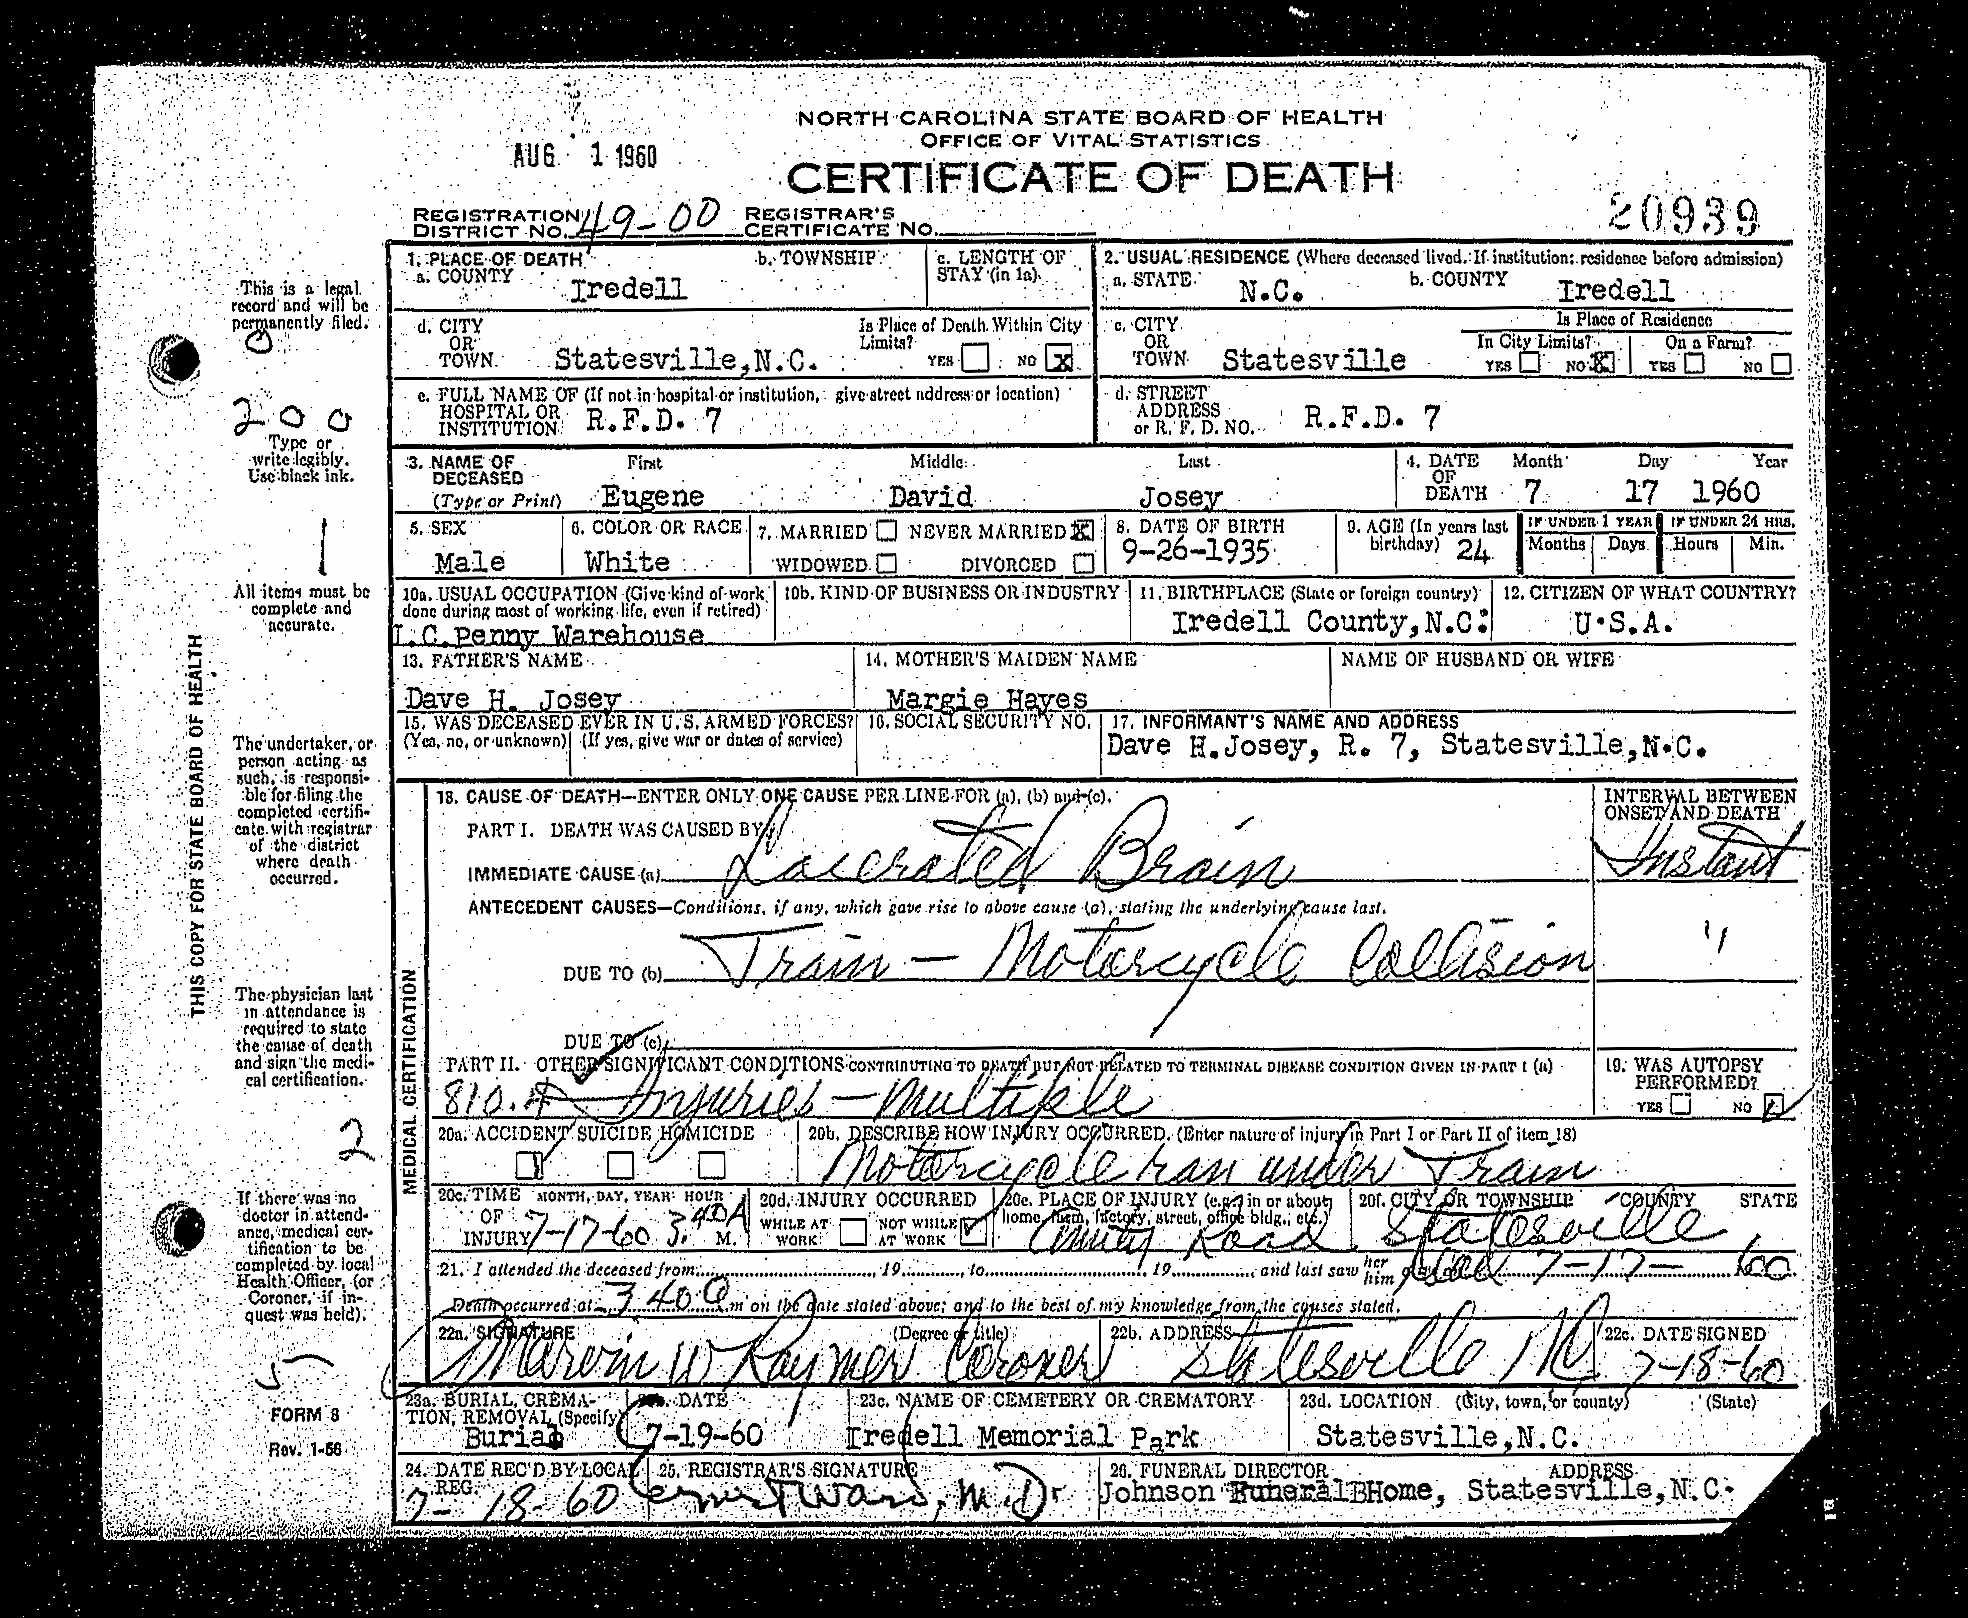 NORTH CAROLINA STATE BOARD OF HEALTH
OFFICE OF VITAL STATISTICS
AUG 1 1960
CERTIFICATE OF DEATH
REGISTRATION DISTRICT NO. 49-00 REGISTRAR'S CERTIFICATE NO.
20939
1. PLACE OF DEATH
a. COUNTY Iredell
b. TOWNSHIP
c. LENGTH OF STAY (in 1a)
2. USUAL RESIDENCE (Where deceased lived. If institution: residence before admission)
a. STATE N.C.
b. COUNTY Iredell
d. CITY OR TOWN Statesville,N.C.
Is Place of Death Within City Limits? YES NO X
c. CITY OR TOWN Statesville
Is Place of Residence
In City Limits? YES NO X
On a Farm? YES NO
e. FULL NAME OF (If not in hospital or institution, give street address or location)
HOSPITAL OR INSTITUTION R.F.D. 7
d. STREET ADDRESS or R. F. D. NO. R.F.D. 7
3. NAME OF DECEASED (Type or Print)
First Eugene
Middle David
Last Josey
4. DATE OF DEATH
Month 7 Day 17 Year 1960
5. SEX Male
6. COLOR OR RACE White
7. MARRIED NEVER MARRIED X
WIDOWED DIVORCED
8. DATE OF BIRTH 9-26-1935
9. AGE (In years last birthday) 24
IF UNDER 1 YEAR Months Days
IF UNDER 24 HRS. Hours Min.
10a. USUAL OCCUPATION (Give kind of work done during most of working life, even if retired)
C.Penny Warehouse
10b. KIND OF BUSINESS OR INDUSTRY
11. BIRTHPLACE (State or foreign country) Iredell County,N.C.
12. CITIZEN OF WHAT COUNTRY? U.S.A.
13. FATHER'S NAME Dave H. Josey
14. MOTHER'S MAIDEN NAME Margie Hayes
NAME OF HUSBAND OR WIFE
15. WAS DECEASED EVER IN U.S. ARMED FORCES?
(Yes, no, or unknown) (If yes, give war or dates of service)
16. SOCIAL SECURITY NO.
17. INFORMANT'S NAME AND ADDRESS
Dave H.Josey, R. 7, Statesville,N.C.
MEDICAL CERTIFICATION
18. CAUSE OF DEATH—ENTER ONLY ONE CAUSE PER LINE FOR (a), (b) and (c).
INTERVAL BETWEEN ONSET AND DEATH
PART I. DEATH WAS CAUSED BY:
IMMEDIATE CAUSE (a) Lacerated Brain
Instant
ANTECEDENT CAUSES—Conditions, if any, which gave rise to above cause (a), stating the underlying cause last.
DUE TO (b) Train — Motorcycle Collision
"
DUE TO (c)
PART II. OTHER SIGNIFICANT CONDITIONS CONTRIBUTING TO DEATH BUT NOT RELATED TO TERMINAL DISEASE CONDITION GIVEN IN PART I (a)
Injuries — Multiple
19. WAS AUTOPSY PERFORMED?
YES NO
20a. ACCIDENT SUICIDE HOMICIDE
20b. DESCRIBE HOW INJURY OCCURRED. (Enter nature of injury in Part I or Part II of item 18)
Motorcycle ran under Train
20c. TIME OF INJURY MONTH, DAY, YEAR HOUR M.
7-17-60 3:40 A
20d. INJURY OCCURRED
WHILE AT WORK NOT WHILE AT WORK
20e. PLACE OF INJURY (e.g., in or about home, farm, factory, street, office bldg., etc.)
County Road
20f. CITY OR TOWNSHIP COUNTY STATE
Statesville
21. I attended the deceased from 19 , to 19 , and last saw her him 7-17- 60
Death occurred at 3 40 a m on the date stated above; and to the best of my knowledge from the causes stated.
22a. SIGNATURE (Degree or title)
Marvin W Raymer Coroner
22b. ADDRESS Statesville NC
22c. DATE SIGNED 7-18-60
23a. BURIAL, CREMATION, REMOVAL (Specify) Burial
DATE 7-19-60
23c. NAME OF CEMETERY OR CREMATORY Iredell Memorial Park
23d. LOCATION (City, town, or county) (State)
Statesville,N.C.
24. DATE REC'D BY LOCAL REG. 7-18-60
25. REGISTRAR'S SIGNATURE
Ward, M.D.
26. FUNERAL DIRECTOR ADDRESS
Johnson Funeral Home, Statesville,N.C.
THIS COPY FOR STATE BOARD OF HEALTH
This is a legal
record and will be
permanently filed.
0
200
Type or
write legibly.
Use black ink.
1
All items must be
complete and
accurate.
The undertaker, or
person acting as
such, is responsi-
ble for filing the
completed certifi-
cate with registrar
of the district
where death
occurred.
The physician last
in attendance is
required to state
the cause of death
and sign the medi-
cal certification.
2
If there was no
doctor in attend-
ance, medical cer-
tification to be
completed by local
Health Officer, (or
Coroner, if in-
quest was held).
5
FORM 8
Rev. 1-56